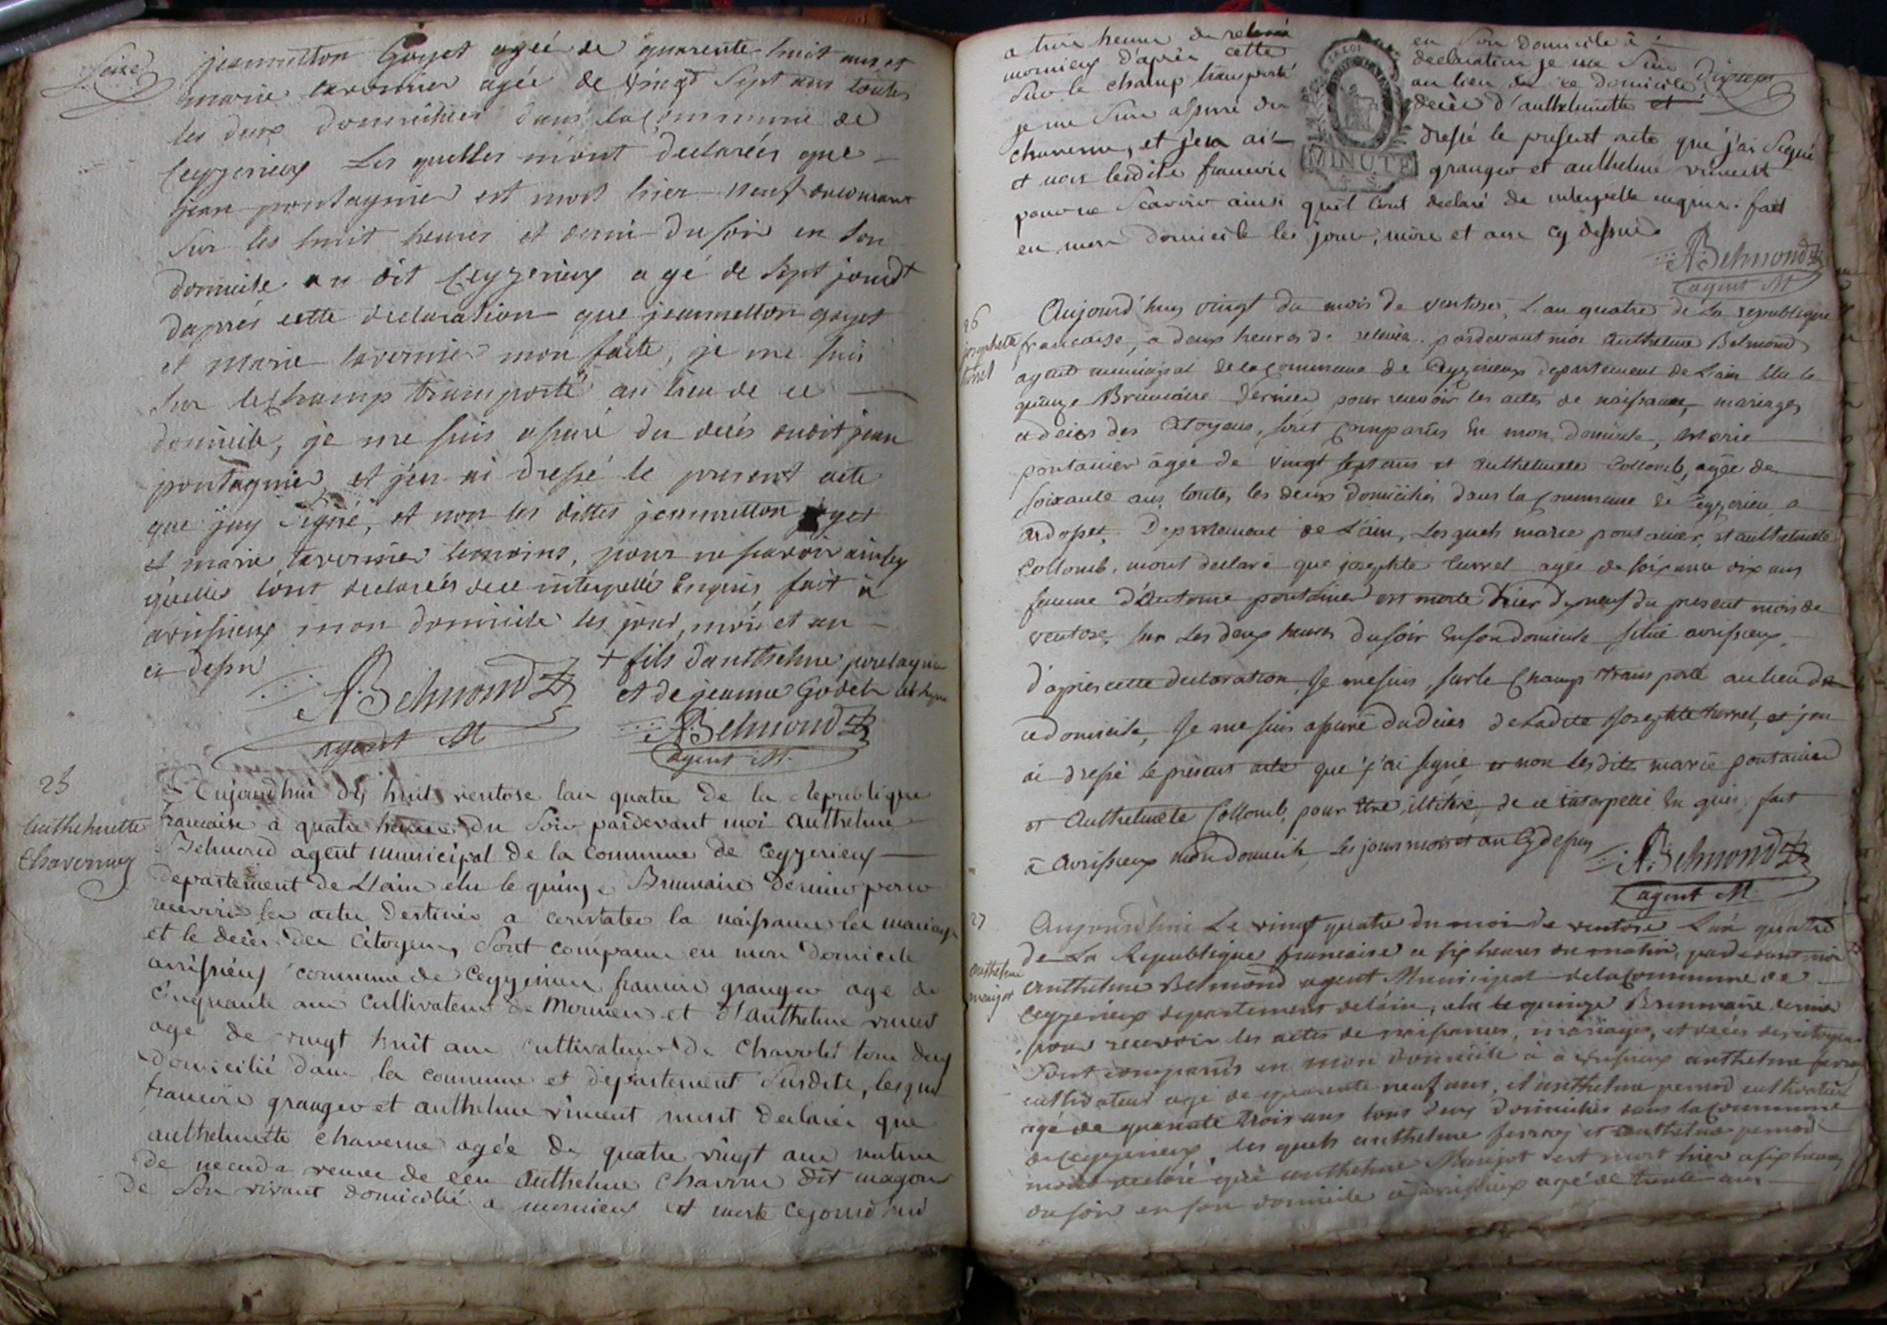 Seize
jeannetton Goyet agée de quarente huit ans et
marie tavernier agée de vingt Sept ans toutes
les deux domiciliées dans la Commune de
Ceyzerieux Les quelles m'ont declarées que
jean pontagnier est mort hier neuf du courant
Sur les huit heures et demi du soir en Son
domicile au dit Ceyzerieux agé de Sept jours +
d'aprés cette déclaration que jeannetton goyet
et Marie tavernier mon faite, je me suis
Sur le champ transporté au lieu de ce
domicile, je me suis assuré du décés dudit jean
pontagnier, et j'en ai dressé le present acte
que j'ay Signé, et non les dittes jeannetton goyet
et marie tavernier temoins, pour ne savoir ainsy
qu'elles l'ont declarées de ce interpellé Enquis fait à
avrissieux mon domicile les jour, mois et an
ci dessu
+ fils d'anthelme pontagnie
et de jeanne Godet
ABelmond
agent M
ABelmond
agent M.
25
Anthelmette
Chavenne
Aujourdhui dix huit ventose l'an quatre de la Republique
francaise a quatre heures du Soir pardevant moi anthelme
Belmond agent municipal de la commune de Ceyzerieux
departement de L'ain elu le quinze Brumaire dernier pour
recevoir les actes destinés a constater la naissance les mariage
et le decès des citoyens, Sont comparu en mon domicile
avrissieux commune de Ceyzerieu francois granger agé de
cinquante ans cultivateur de Mornieu et d'anthelme vincent
agé de vingt huit ans cultivateur de Chavolet tous deux
domicilié dans la commune et departement Susdite, lesquel
francois granger et anthelme vincent mont déclaré que
anthelmette chavenne agée de quatre vingt ans native
de veuve de feu anthelme Chavenne dit magon
de Son vivant domicilié a mornieu est morte cejourd'hui
a trois heures de relevée en Son domicile à
mornieux d'après cette declaration je me Suis
Sur le champ transporté au lieu de ce domicile
je me Suis assuré du decès d'anthelmette et
chavenne, et j'en ai dressé le present acte que j'ai Signé
et non lesdits francois granger et anthelme vincent
pour ne Scavoir ainsi qu'il l'ont declaré de interpellé enquis. fait
en mon domicile les jour, mois et an cy dessus
MINUTE
ABelmond
agent M
26
josephte
turrel
Aujourd'huy vingt du mois de ventose, L'an quatre de La republique
francaise, a deux heures de relevée pardevant moi Anthelme Belmond
agent municipal de la commune de Ceyzerieux departement de L'ain Elu le
quinze Brumaire dernier pour recevoir les actes de naissance, mariages
et deces des Citoyens, sont comparües En mon domicile, Marie
pontanier âgée de vingt sept ans et anthelmete Collomb, agée de
soixante ans toutes les deux domiciliés dans la Commune de Ceyzerieu, a
ardosset, Departement de L'ain, Lesquels marie pontanier, et anthelmete
Collomb, mont declaré que josephte turrel agée de soixante dix ans
femme d'Antoine pontanier est morte hier dixneuf du present mois de
ventose, sur Les deux heures du soir En son domicile situé avrissieux,
d'après cette declaration, Je me suis, sur le Champ transporté au lieu de
ce domicile, Je me suis assuré du deces de Ladite Josephte turrel, et j'en
ai dressé le present acte que j'ai signé, et non lesdites marie pontanier
et Anthelmete Collomb, pour être illitéré, de ce interpellé En quis; fait
à avrissieux mon domicile Les jours mois et an Cy dessus
ABelmond
agent M
27
anthelme
maujot
Aujourd'hui Le vingt quatre du mois de ventose L'an quatre
de La Republique francaise a six heures du matin, pardevant moi
anthelme Belmond agent Municipal de la Commune de
Ceyzerieux departement de lain, elu le quinze Brumaire dernier
pour recevoir les actes de naissances, mariages, et deces des citoyens
Sont comparus en mon domicile à avrissieux anthelme
cultivateur agé de quarente neuf ans, et anthelme pernod cultivateur
agé de quarente trois ans tous deux domiciliés dans la Commune
de Ceyzerieux, les quels anthelme et anthelme pernod
mont declaré que anthelme Maujot est mort hier a six heures
du soir en son domicile à avrissieux agé de trente ans